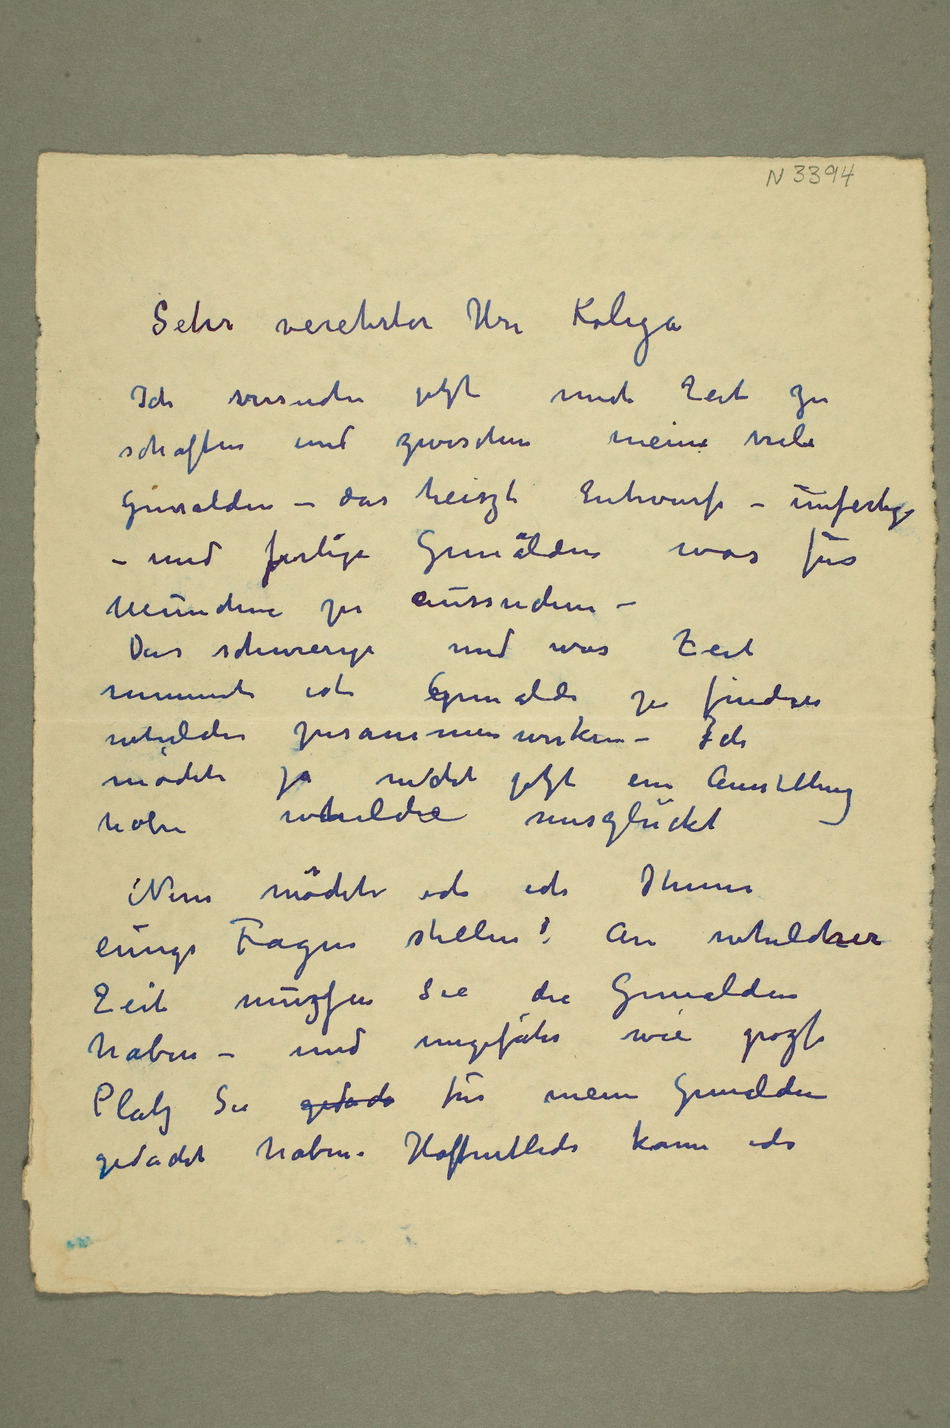 N 3394
Sehr verehrter Herr Kolega
Ich versuche jetzt mich Zeit zu
schaffen und zwischen meine viele
Gemälden – das heiszt Entwurfe – unfertige
– und fertige Gemälden was für
München zu aussuchen –
Das schwerige und was Zeit
nimmt ist Gemälde zu finden
welche zusammen wirken – Ich
möchte ja nicht jetzt ein Ausstellung
haben welche misglückt
Nun möchte ich ich Ihnen
einige Fragen stellen: An welcher
Zeit müszen Sie die Gemälden
haben – und ungefähr wie grosze
Platz Sie gedacht für meine Gemälden
gedacht haben. Hoffentlich kann ich